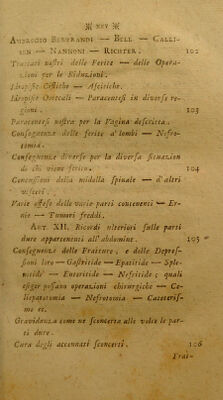 ※ XIV ※
AMBROGIO BERTRANDI — BELL — CALLI-
SEN — NANNONI — RICHTER. 102
Trattati nostri delle Ferite — delle Opera-
zioni per le Riduzioni.
Idropisie Cistiche — Ascitiche.
Idropisie Ovarcali — Paracentesi in diverse re-
gioni. 103
Paracentesi nostra per la Vagina descritta.
Conseguenze delle ferite a' lombi — Nefro-
tomia.
Conseguenze diverse per la diversa situazion
di chi viene ferito. 104
Concussioni della midolla spinale — d'altri
visceri.
Varie offese delle varie parti contenenti — Er-
nie — Tumori freddi.
ART. XII. Ricordi ulteriori sulle parti
dure appartenenti all'abdomine. 105
Conseguenze delle Fratture, e delle Depres-
sioni loro — Gastritide — Epatitide — Sple-
nitide — Enteritide — Nefritide; quali
esiger possano operazioni chirurgiche — Ce-
liopatomia — Nefrotomia — Cateteris-
mo ec.
Gravidanza come ne sconcerta alle volte le par-
ti dure.
Cura degli accennati sconcerti. 106
Frai-